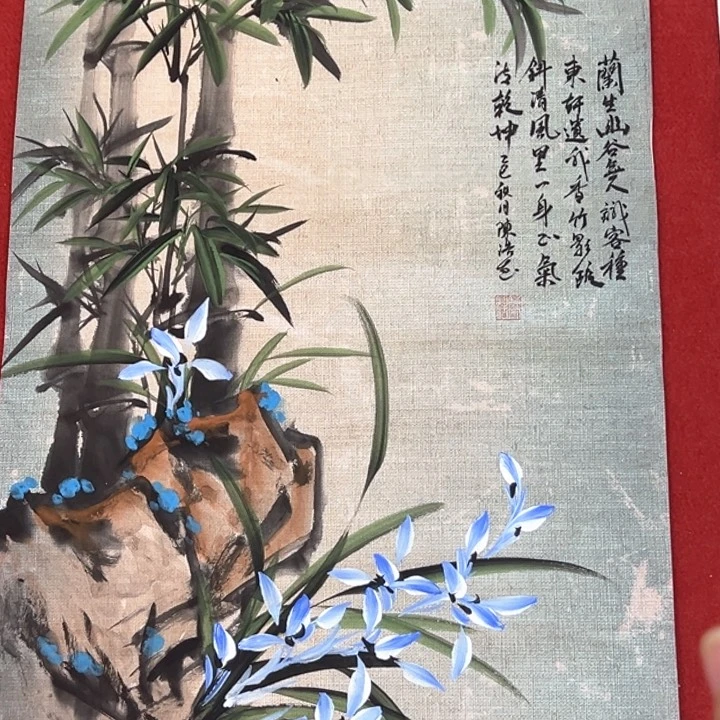 蘭生幽谷無人識客種
東軒遺我香竹影
斜清風里一身正氣
乾坤 乙巳秋月陳浩